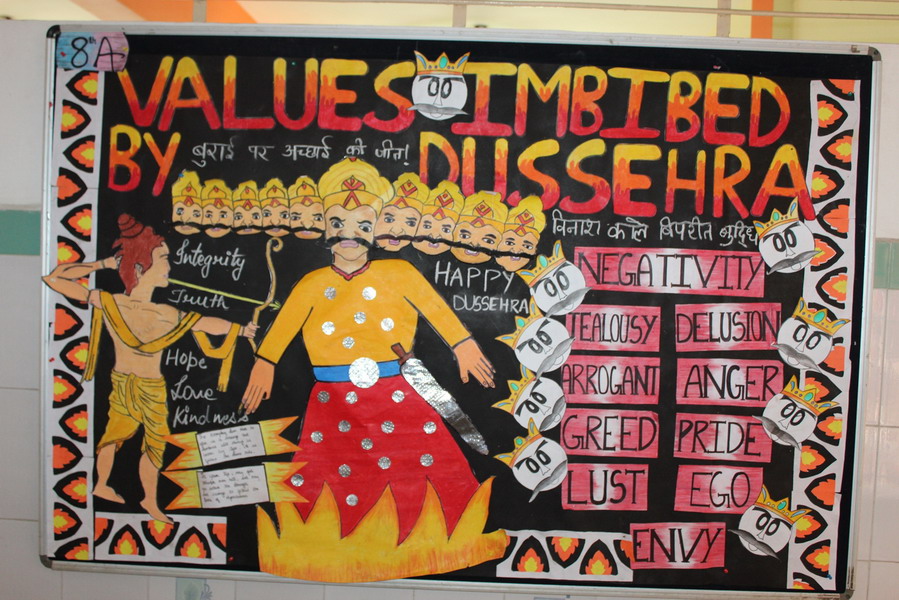 8th A
VALUES IMBIBED
BY बुराई पर अच्छाई की जीत! DUSSEHRA
विनाश काले विपरीत बुद्धि
Integrity
Truth
Hope
Love
Kindness
HAPPY
DUSSEHRA
NEGATIVITY
JEALOUSY DELUSION
ARROGANT ANGER
GREED PRIDE
LUST EGO
ENVY